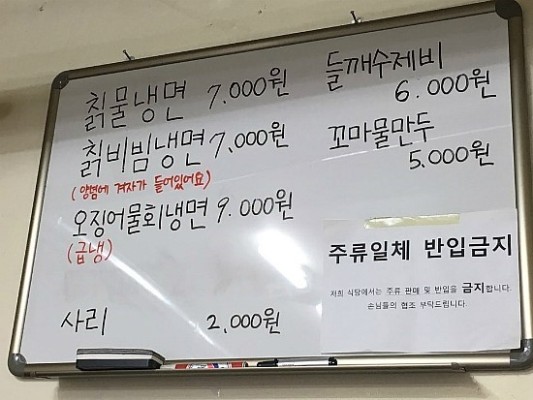 칡물냉면 7.000원
칡비빔냉면 7,000원
(양념에 겨자가 들어있어요)
오징어물회냉면 9.000원
(급냉)
사리 2.000원
들깨수제비
6.000원
꼬마물만두
5.000원
주류일체 반입금지
저희 식당에서는 주류 판매 및 반입을 금지합니다.
손님들의 협조 부탁드립니다.